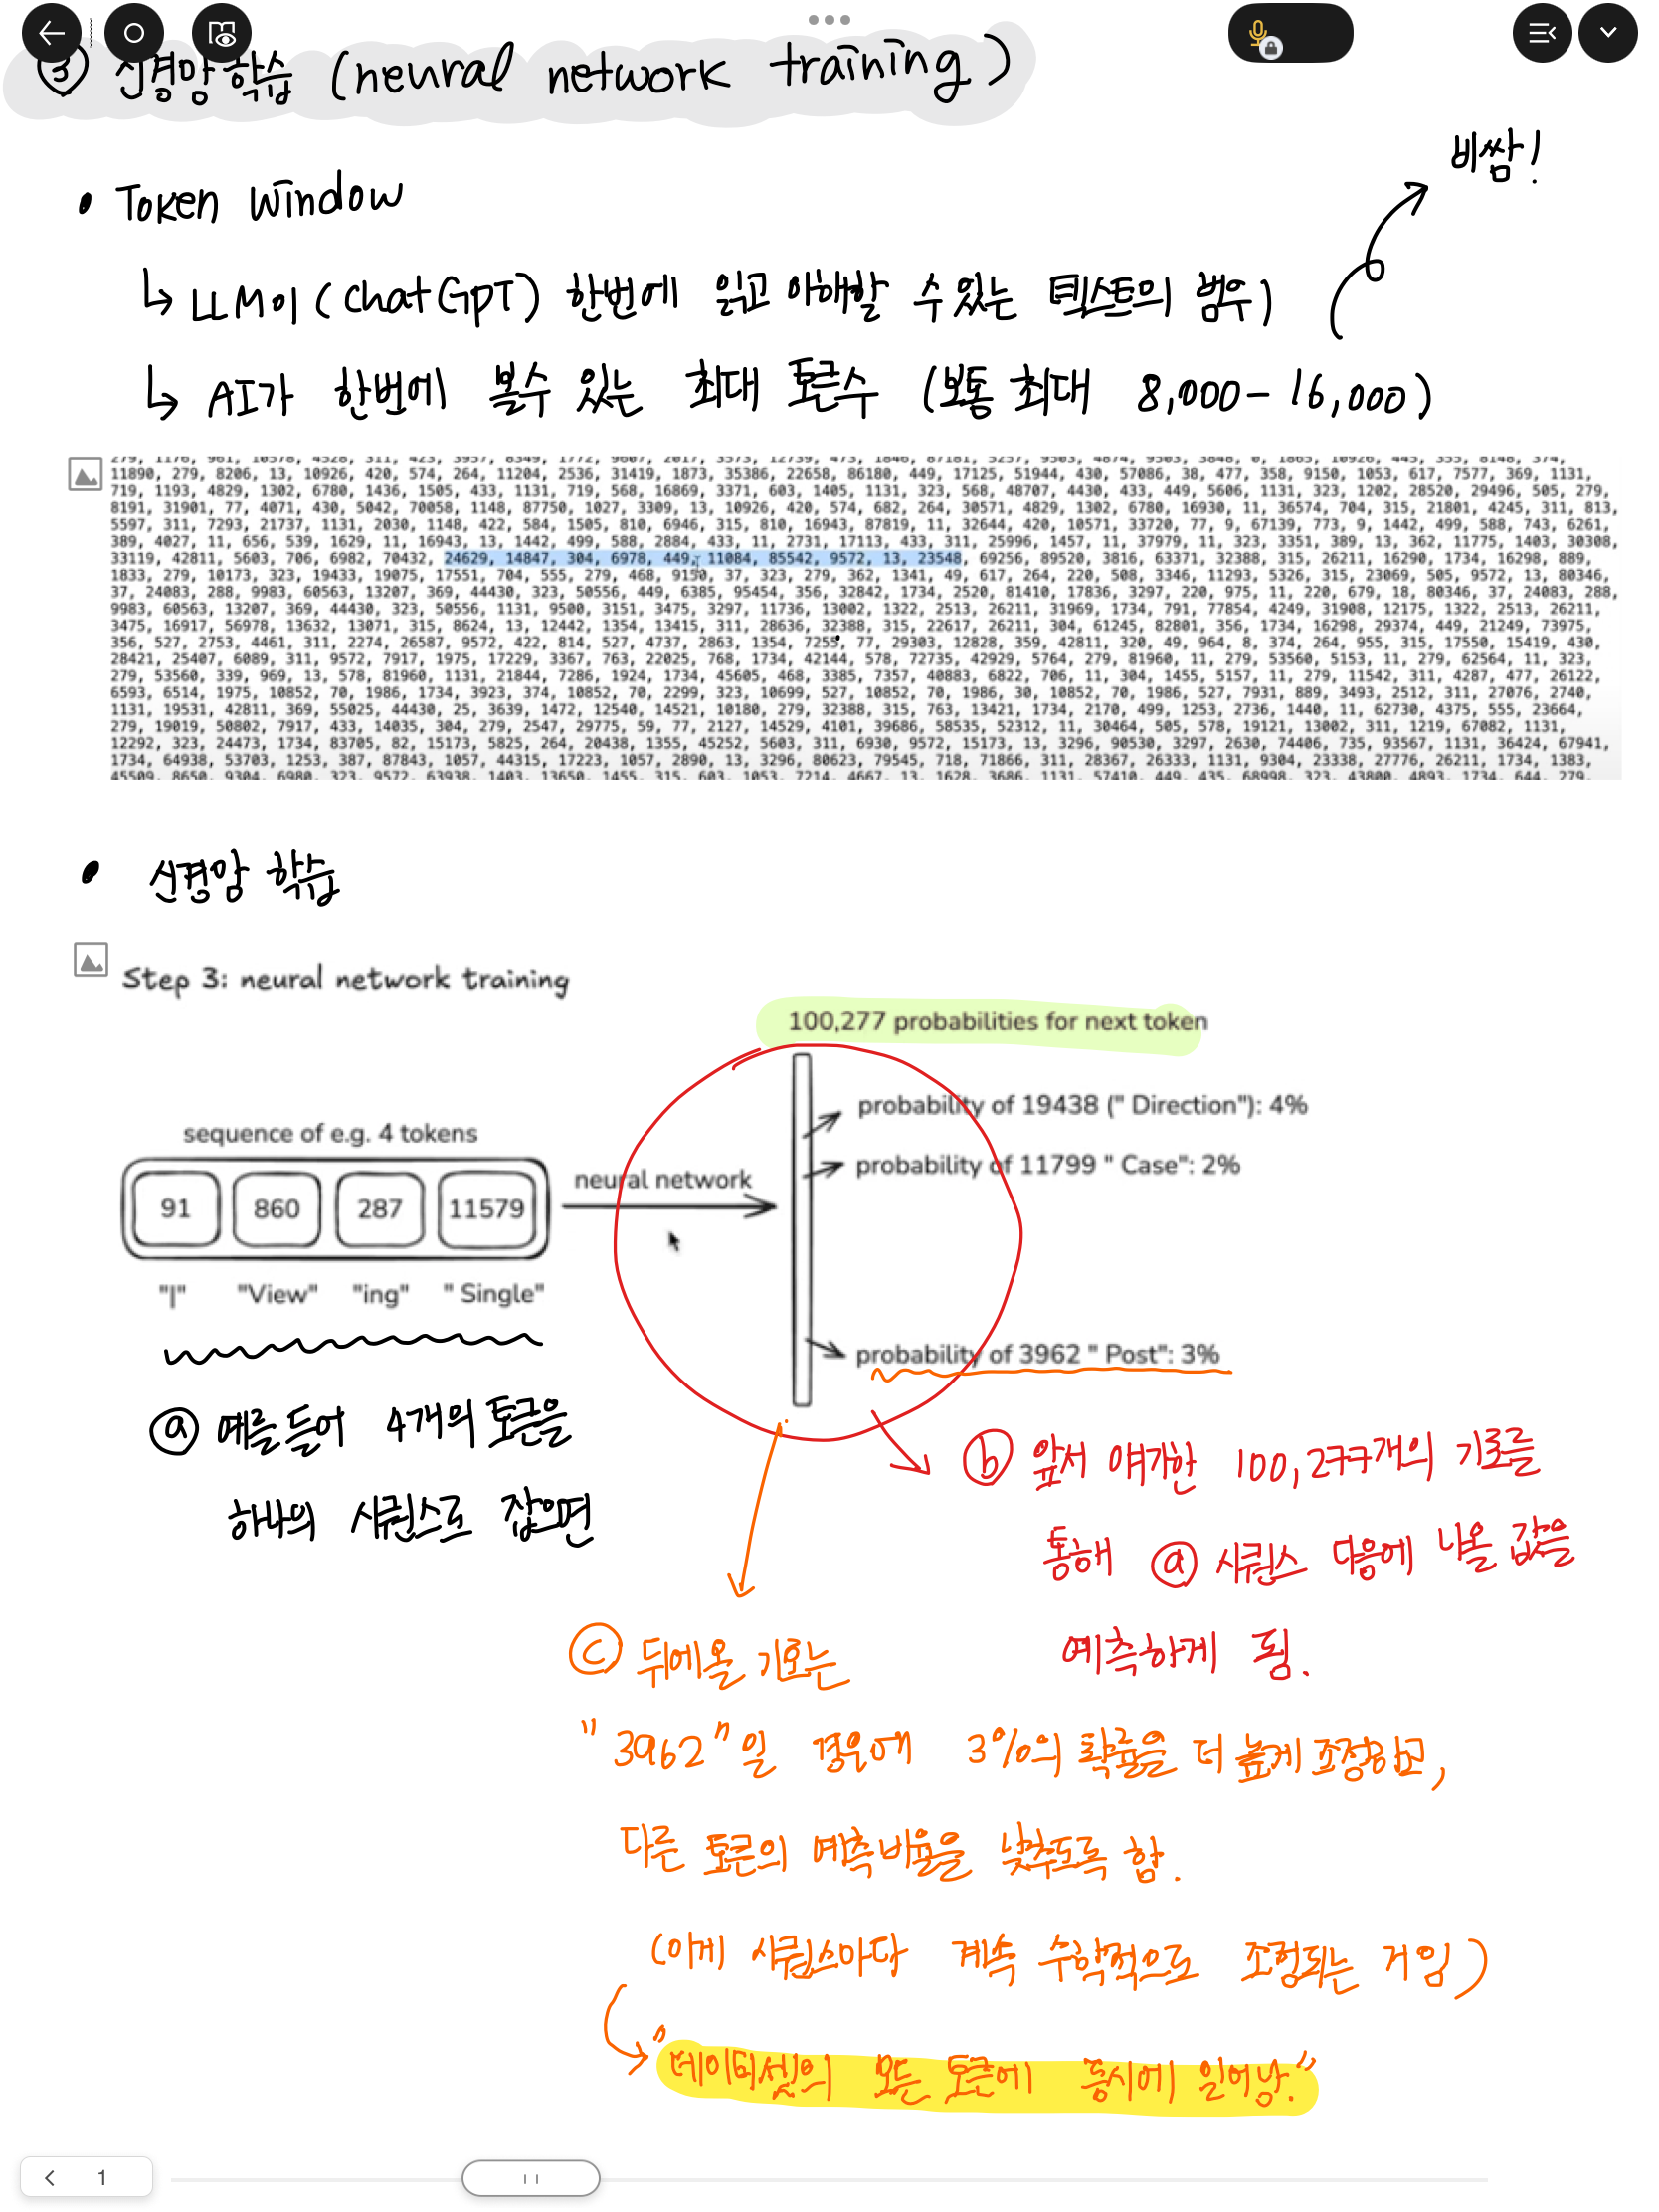 ③ 신경망 학습 (neural network training)
비쌈!
• Token Window
↳ LLM이 (chatGpT) 한번에 읽고 이해할 수 있는 텍스트의 범위
↳ AI가 한번에 볼수 있는 최대 토큰수 (보통 최대 8,000 - 16,000)
11890, 279, 8206, 13, 10926, 420, 574, 264, 11204, 2536, 31419, 1873, 35386, 22658, 86180, 449, 17125, 51944, 430, 57086, 38, 477, 358, 9150, 1053, 617, 7577, 369, 1131,
719, 1193, 4829, 1302, 6780, 1436, 1505, 433, 1131, 719, 568, 16869, 3371, 603, 1405, 1131, 323, 568, 48707, 4430, 433, 449, 5606, 1131, 323, 1202, 28520, 29496, 505, 279,
8191, 31901, 77, 4071, 430, 5042, 70058, 1148, 87750, 1027, 3309, 13, 10926, 420, 574, 682, 264, 30571, 4829, 1302, 6780, 16930, 11, 36574, 704, 315, 21801, 4245, 311, 813,
5597, 311, 7293, 21737, 1131, 2030, 1148, 422, 584, 1505, 810, 6946, 315, 810, 16943, 87819, 11, 32644, 420, 10571, 33720, 77, 9, 67139, 773, 9, 1442, 499, 588, 743, 6261,
389, 4027, 11, 656, 539, 1629, 11, 16943, 13, 1442, 499, 588, 2884, 433, 11, 2731, 17113, 433, 311, 25996, 1457, 11, 37979, 11, 323, 3351, 389, 13, 362, 11775, 1403, 30308,
33119, 42811, 5603, 706, 6982, 70432, 24629, 14847, 304, 6978, 449, 11084, 85542, 9572, 13, 23548, 69256, 89520, 3816, 63371, 32388, 315, 26211, 16290, 1734, 16298, 889,
1833, 279, 10173, 323, 19433, 19075, 17551, 704, 555, 279, 468, 9150, 37, 323, 279, 362, 1341, 49, 617, 264, 220, 508, 3346, 11293, 5326, 315, 23069, 505, 9572, 13, 80346,
37, 24083, 288, 9983, 60563, 13207, 369, 44430, 323, 50556, 449, 6385, 95454, 356, 32842, 1734, 2520, 81410, 17836, 3297, 220, 975, 11, 220, 679, 18, 80346, 37, 24083, 288,
9983, 60563, 13207, 369, 44430, 323, 50556, 1131, 9500, 3151, 3475, 3297, 11736, 13002, 1322, 2513, 26211, 31969, 1734, 791, 77854, 4249, 31908, 12175, 1322, 2513, 26211,
3475, 16917, 56978, 13632, 13071, 315, 8624, 13, 12442, 1354, 13415, 311, 28636, 32388, 315, 22617, 26211, 304, 61245, 82801, 356, 1734, 16298, 29374, 449, 21249, 73975,
356, 527, 2753, 4461, 311, 2274, 26587, 9572, 422, 814, 527, 4737, 2863, 1354, 7255, 77, 29303, 12828, 359, 42811, 320, 49, 964, 8, 374, 264, 955, 315, 17550, 15419, 430,
28421, 25407, 6089, 311, 9572, 7917, 1975, 17229, 3367, 763, 22025, 768, 1734, 42144, 578, 72735, 42929, 5764, 279, 81960, 11, 279, 53560, 5153, 11, 279, 62564, 11, 323,
279, 53560, 339, 969, 13, 578, 81960, 1131, 21844, 7286, 1924, 1734, 45605, 468, 3385, 7357, 40883, 6822, 706, 11, 304, 1455, 5157, 11, 279, 11542, 311, 4287, 477, 26122,
6593, 6514, 1975, 10852, 70, 1986, 1734, 3923, 374, 10852, 70, 2299, 323, 10699, 527, 10852, 70, 1986, 30, 10852, 70, 1986, 527, 7931, 889, 3493, 2512, 311, 27076, 2740,
1131, 19531, 42811, 369, 55025, 44430, 25, 3639, 1472, 12540, 14521, 10180, 279, 32388, 315, 763, 13421, 1734, 2170, 499, 1253, 2736, 1440, 11, 62730, 4375, 555, 23664,
279, 19019, 50802, 7917, 433, 14035, 304, 279, 2547, 29775, 59, 77, 2127, 14529, 4101, 39686, 58535, 52312, 11, 30464, 505, 578, 19121, 13002, 311, 1219, 67082, 1131,
12292, 323, 24473, 1734, 83705, 82, 15173, 5825, 264, 20438, 1355, 45252, 5603, 311, 6930, 9572, 15173, 13, 3296, 90530, 3297, 2630, 74406, 735, 93567, 1131, 36424, 67941,
1734, 64938, 53703, 1253, 387, 87843, 1057, 44315, 17223, 1057, 2890, 13, 3296, 80623, 79545, 718, 71866, 311, 28367, 26333, 1131, 9304, 23338, 27776, 26211, 1734, 1383,
• 신경망 학습
Step 3: neural network training
100,277 probabilities for next token
probability of 19438 (" Direction"): 4%
sequence of e.g. 4 tokens
probability of 11799 " Case": 2%
neural network
91 860 287 11579
"|" "View" "ing" " Single"
probability of 3962 " Post": 3%
ⓐ 예를 들어 4개의 토큰을
하나의 시퀀스로 잡으면
ⓑ 앞서 얘기한 100,277개의 기호를
통해 ⓐ 시퀀스 다음에 나올 값을
예측하게 됨.
ⓒ 뒤에올 기호는
"3962"일 경우에 3%의 확률을 더 높게 조정하고,
다른 토큰의 예측비율을 낮추도록 함.
(이게 시퀀스마다 계속 수학적으로 조정되는 거임)
"데이터셋의 모든 토큰에 동시에 일어남."
1